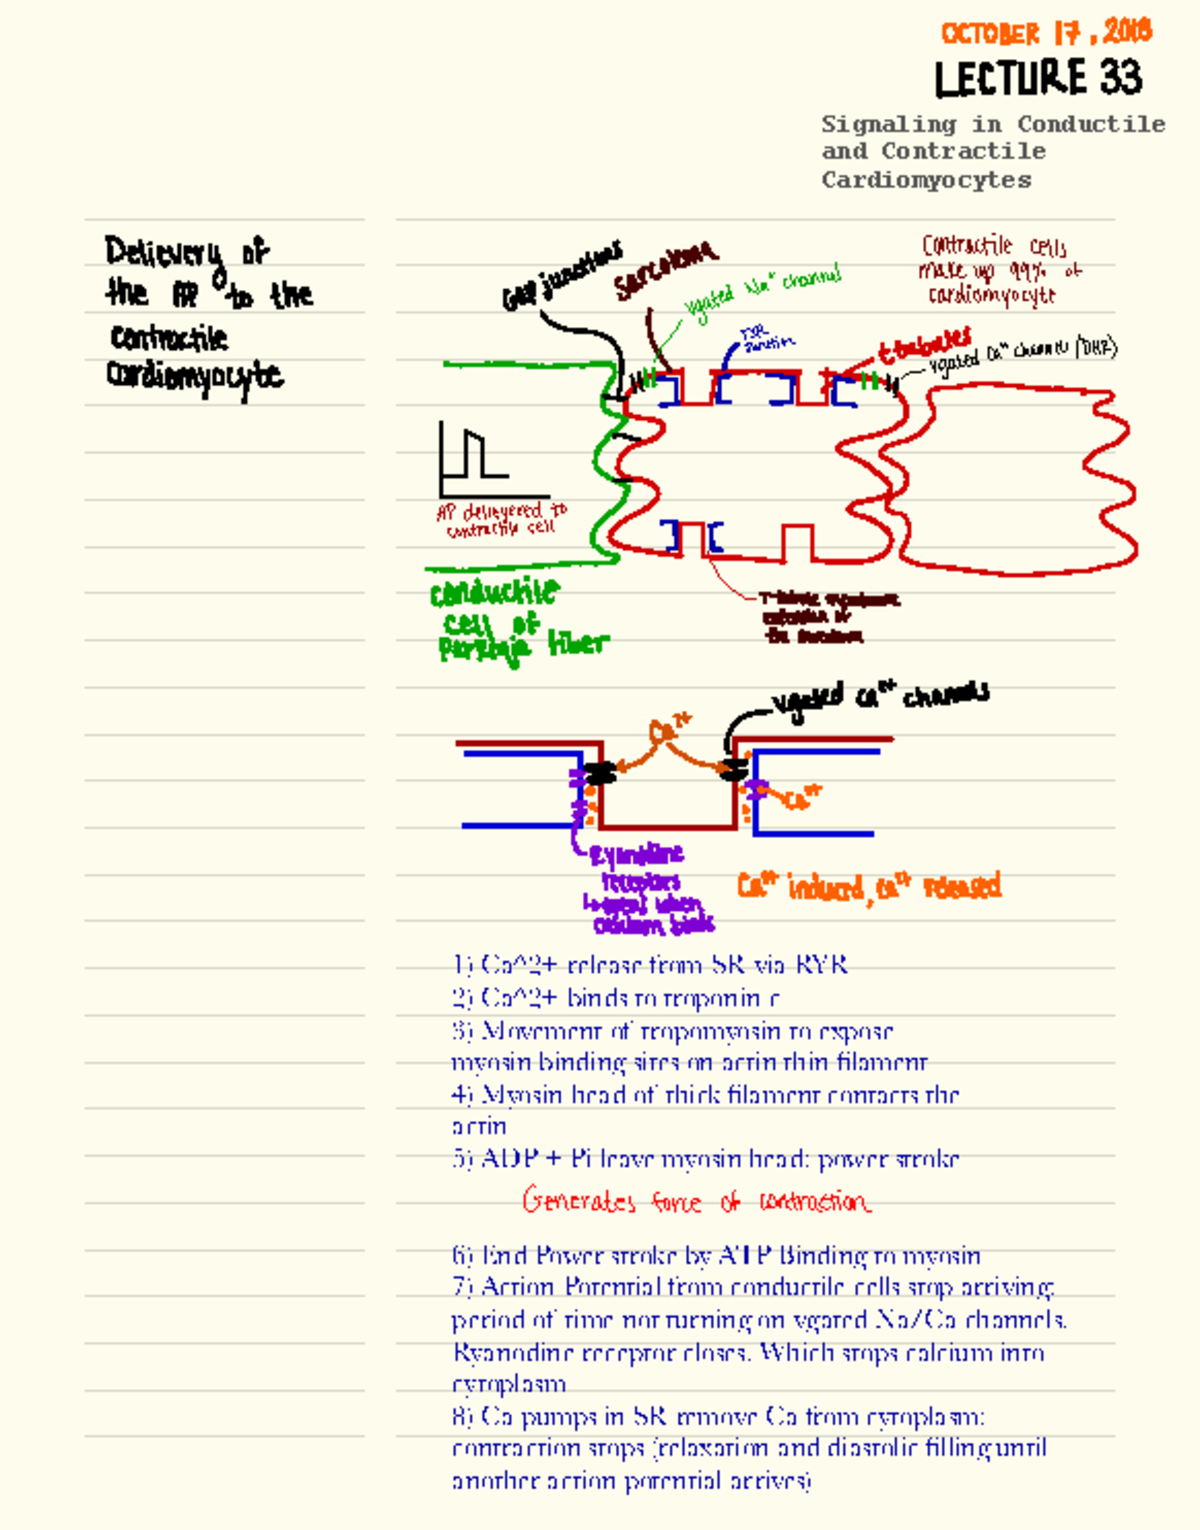 OCTOBER 17, 2018
LECTURE 33
Signaling in Conductile
and Contractile
Cardiomyocytes
Delievery of
the AP to the
contractile
cardiomyocyte
Gap junctions
Sarcolema
vgated Na⁺ channel
Contractile cells
make up 99% of
cardiomyocyte
junction
t-tubules
vgated Ca⁺⁺ channel (DHP)
AP delieyered to
contractile cell
conductile
cell of
T-tubule membrane
extension of
the
vgated Ca²⁺ channels
Ca²⁺
Ca²⁺
Ryanodine
receptors
when
calcium binds
Ca²⁺ induced, Ca²⁺ released
1) Ca^2+ release from SR via RYR
2) Ca^2+ binds to troponin c
3) Movement of tropomyosin to expose
myosin binding sites on actin thin filament
4) Myosin head of thick filament contacts the
actin
5) ADP + Pi leave myosin head: power stroke
Generates force of contraction
6) End Power stroke by ATP Binding to myosin
7) Action Potential from conductile cells stop arriving;
period of time not turning on vgated Na/Ca channels.
Ryanodine receptor closes. Which stops calcium into
cytoplasm
8) Ca pumps in SR remove Ca from cytoplasm:
contraction stops (relaxation and diastolic filling until
another action potential arrives)